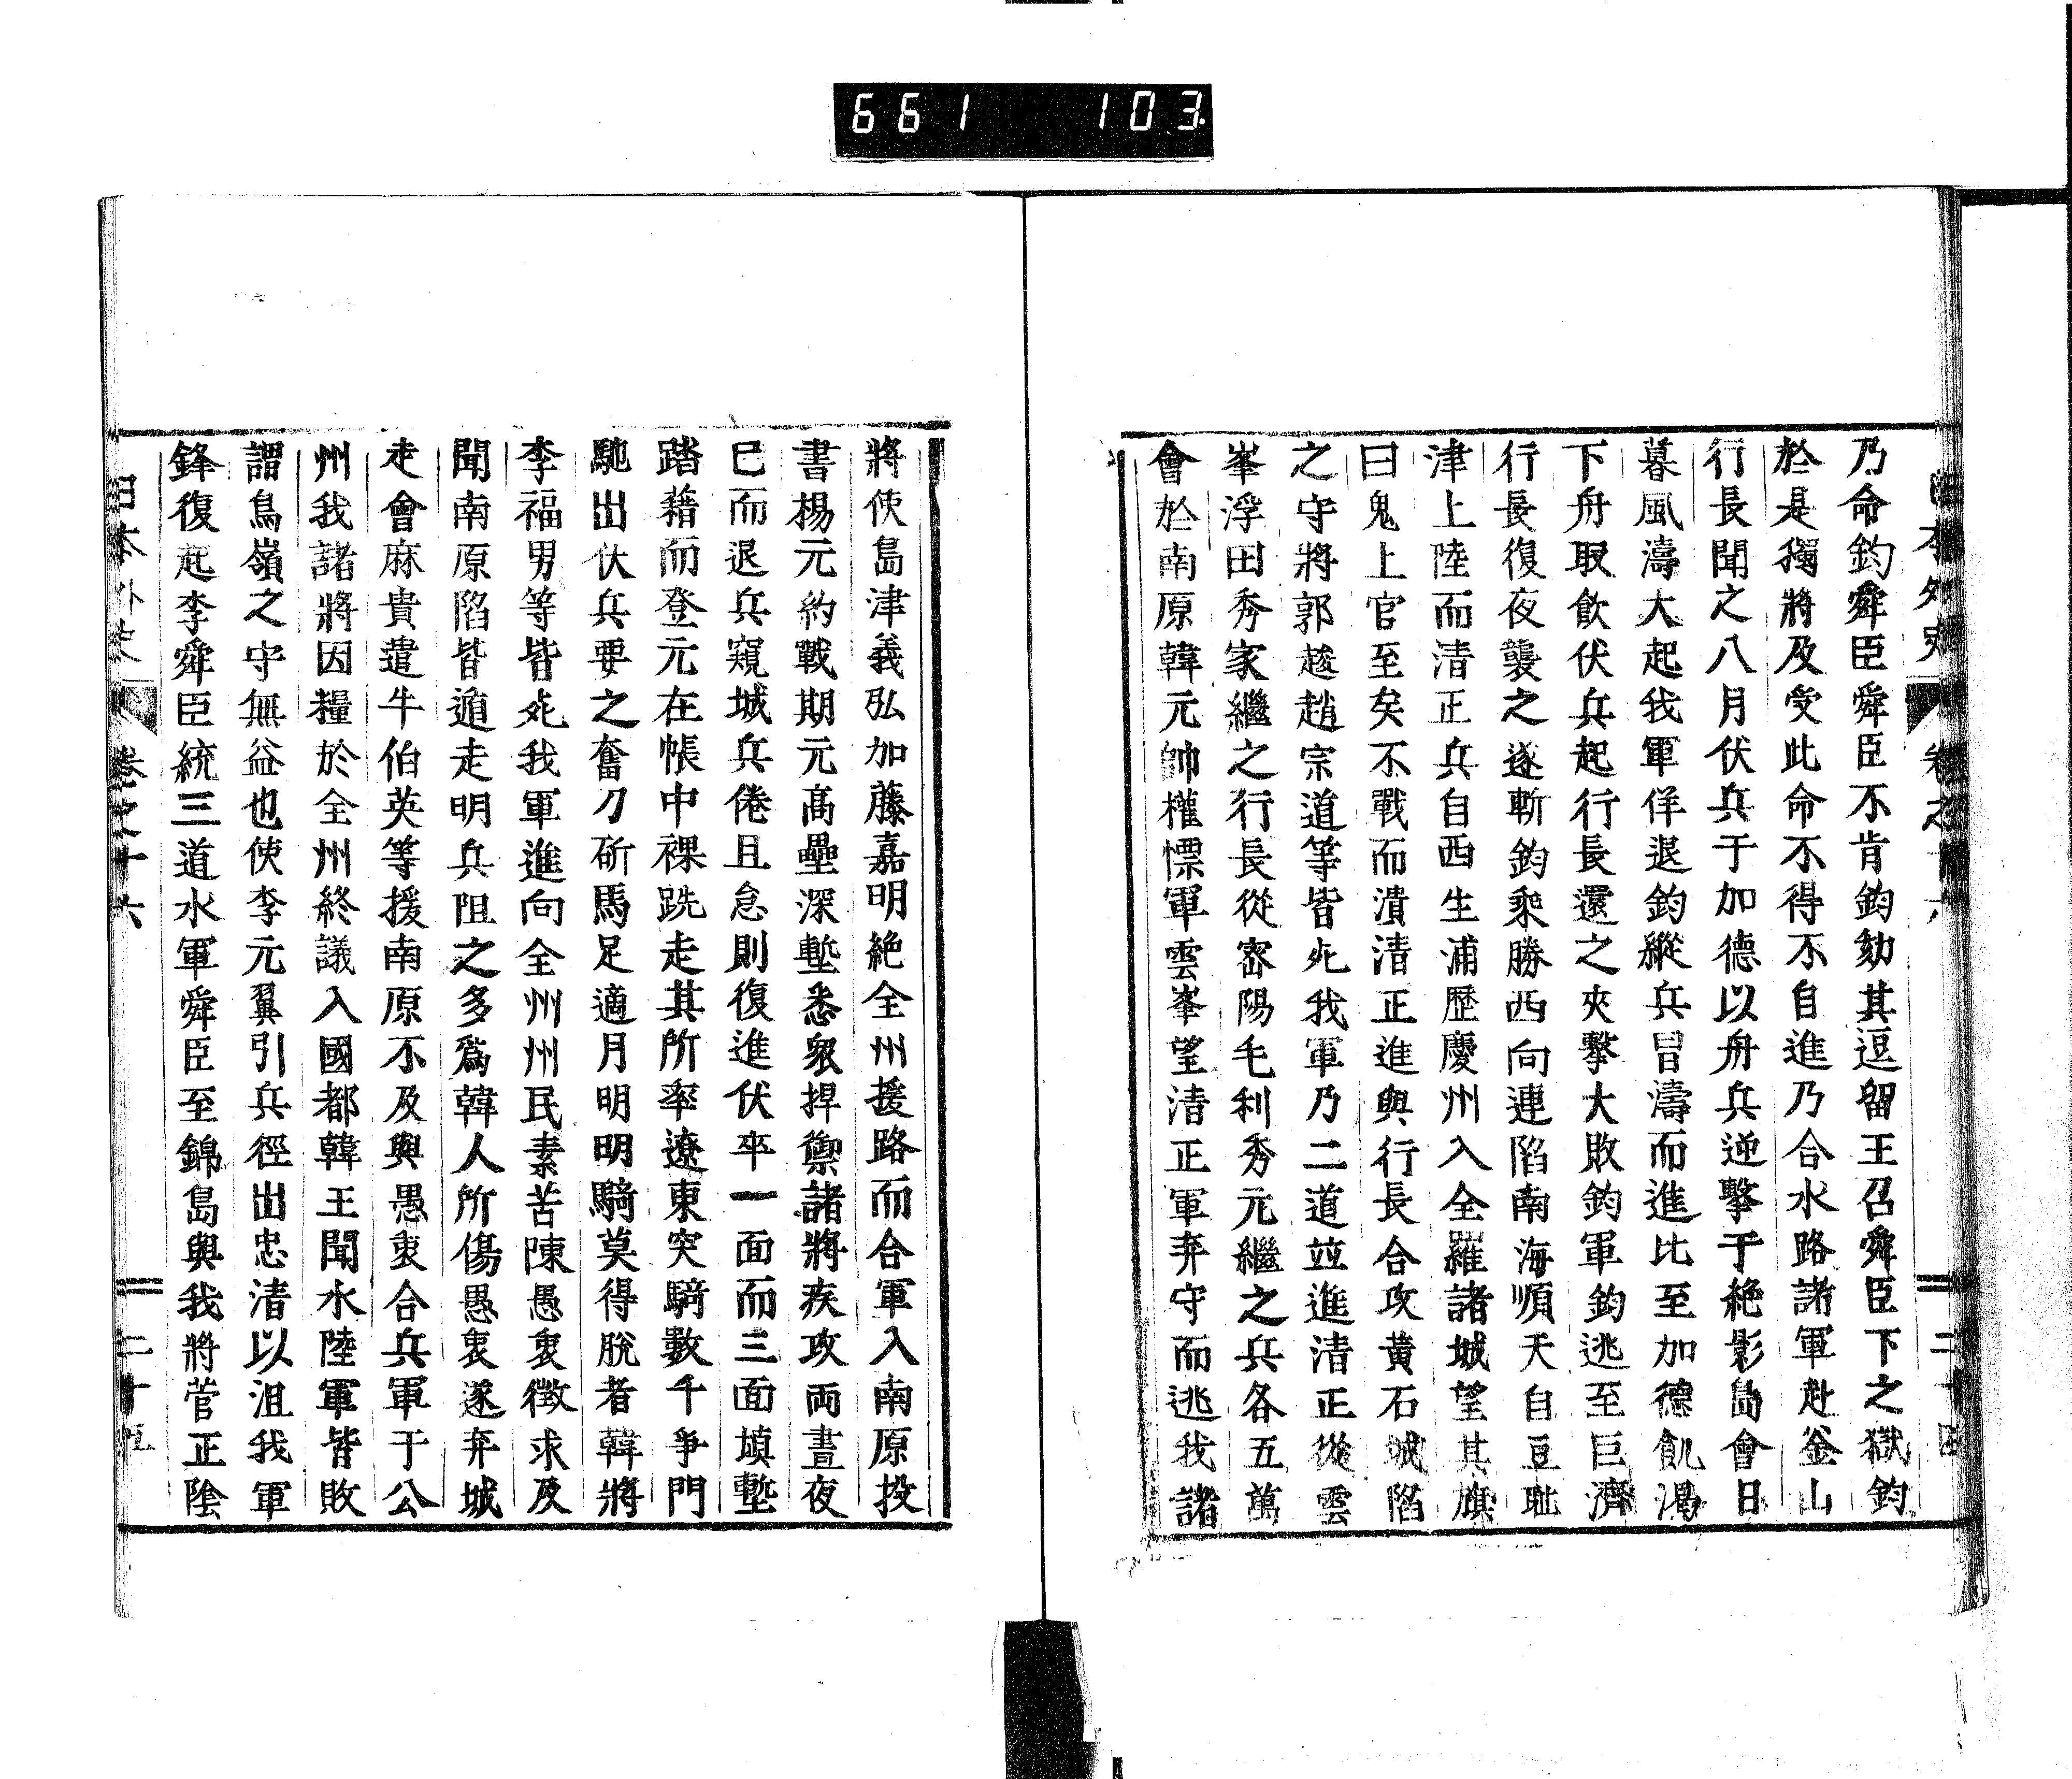 661 103
日本外史 卷之十六 二十四
乃命鈞舜臣舜臣不肯鈞劾其逗留王召舜臣下之獄鈞
於是獨將及受此命不得不自進乃合水路諸軍赴釜山
行長聞之八月伏兵于加德以舟兵逆擊于絶影島會日
暮風濤大起我軍佯退鈞縱兵冒濤而進比至加德飢渴
下舟取飲伏兵起行長還之夾擊大敗鈞軍鈞逃至巨濟
行長復夜襲之遂斬鈞乘勝西向連陷南海順天自豆耻
津上陸而清正兵自西生浦歷慶州入全羅諸城望其旗
曰鬼上官至矣不戰而潰清正進與行長合攻黄石城陷
之守將郭䞭趙宗道等皆死我軍乃二道竝進清正從雲
峯浮田秀家繼之行長從密陽毛利秀元繼之兵各五萬
會於南原韓元帥權慄軍雲峯望清正軍弃守而逃我諸
將使島津義弘加藤嘉明絶全州援路而合軍入南原投
書楊元約戰期元髙壘深塹悉衆捍禦諸將疾攻両晝夜
已而退兵窺城兵倦且怠則復進伏卒一面而三面塡塹
踏藉而登元在帳中裸跣走其所率遼東突騎數千爭門
馳出伏兵要之奮刀斫馬足適月明明騎莫得脱者韓將
李福男等皆死我軍進向全州州民素苦陳愚衷徴求及
聞南原陷皆遁走明兵阻之多爲韓人所傷愚衷遂弃城
走會麻貴遣牛伯英等援南原不及與愚衷合兵軍于公
州我諸將因糧於全州終議入國都韓王聞水陸軍皆敗
謂鳥嶺之守無益也使李元翼引兵徑出忠清以沮我軍
鋒復起李舜臣統三道水軍舜臣至錦島與我將菅正陰
日本外史 卷之十六 二十五